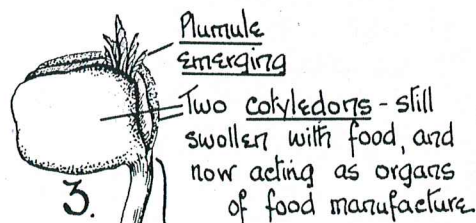 Plumule
emerging
Two cotyledons - still
swollen with food, and
now acting as organs
of food manufacture
3.